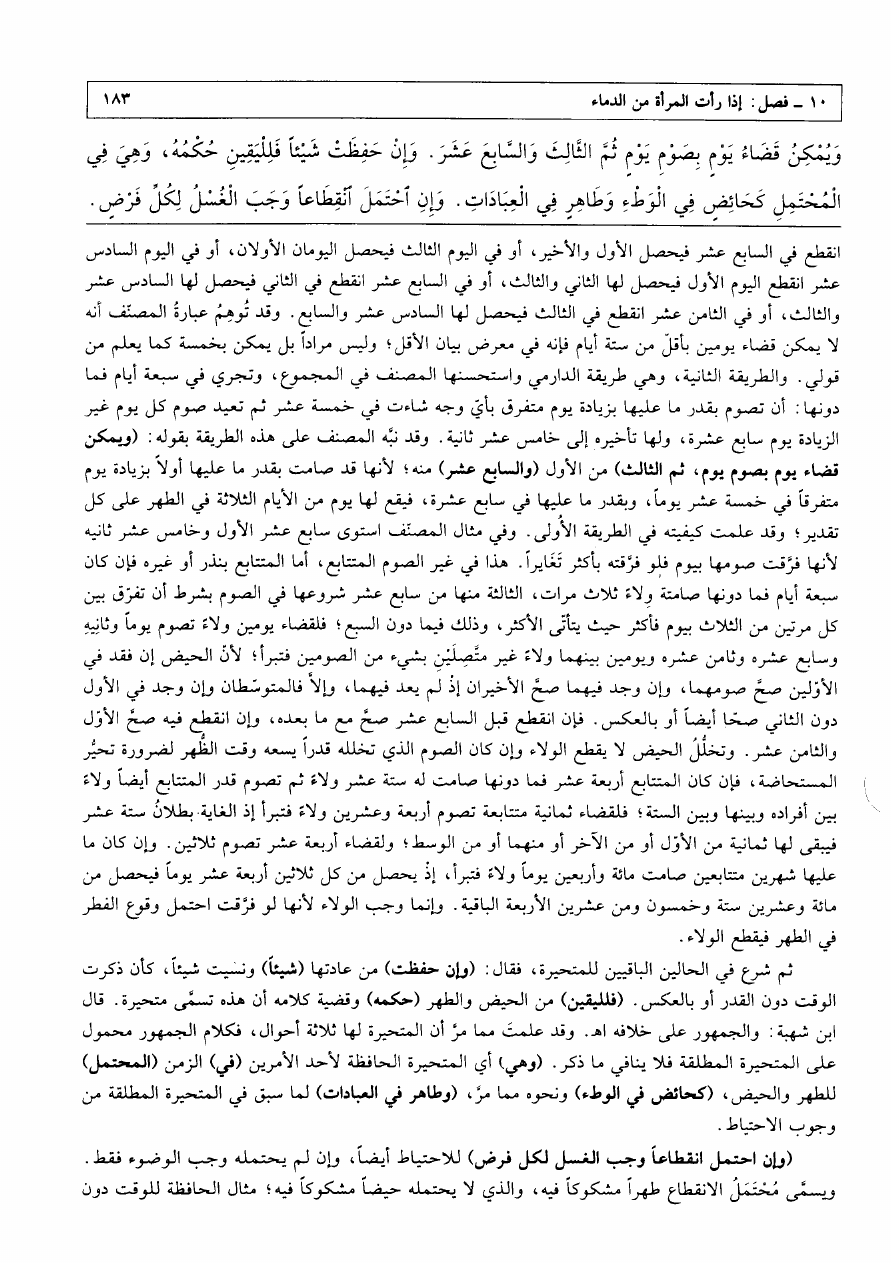 ١٠ ـ فصل: إذا رأت المرأة من الدماء ١٨٣
وَيُمْكِنُ قَضَاءُ يَوْمٍ بِصَوْمِ يَوْمٍ ثُمَّ الثَّالِثَ وَالسَّابِعَ عَشَرَ. وَإِنْ حَفِظَتْ شَيْئاً فَلِلْيَقِينِ حُكْمُهُ، وَهِيَ فِي
الْمُحْتَمِلِ كَحَائِضٍ فِي الْوَطْءِ وَطَاهِرٍ فِي الْعِبَادَاتِ. وَإِنِ ٱحْتَمَلَ ٱنْقِطَاعاً وَجَبَ الْغُسْلُ لِكُلِّ فَرْضٍ.
انقطع في السابع عشر فيحصل الأول والأخير، أو في اليوم الثالث فيحصل اليومان الأولان، أو في اليوم السادس
عشر انقطع اليوم الأول فيحصل لها الثاني والثالث، أو في السابع عشر انقطع في الثاني فيحصل لها السادس عشر
والثالث، أو في الثامن عشر انقطع في الثالث فيحصل لها السادس عشر والسابع. وقد تُوهِمُ عبارةُ المصنّف أنه
لا يمكن قضاء يومين بأقلّ من ستة أيام فإنه في معرض بيان الأقل؛ وليس مراداً بل يمكن بخمسة كما يعلم من
قولي. والطريقة الثانية، وهي طريقة الدارمي واستحسنها المصنف في المجموع، وتجري في سبعة أيام فما
دونها: أن تصوم بقدر ما عليها بزيادة يوم متفرق بأيّ وجه شاءت في خمسة عشر ثم تعيد صوم كل يوم غير
الزيادة يوم سابع عشرة، ولها تأخيره إلى خامس عشر ثانية. وقد نبَّه المصنف على هذه الطريقة بقوله: (ويمكن
قضاء يوم بصوم يوم، ثم الثالث) من الأول (والسابع عشر) منه؛ لأنها قد صامت بقدر ما عليها أولاً بزيادة يوم
متفرقاً في خمسة عشر يوماً، وبقدر ما عليها في سابع عشرة، فيقع لها يوم من الأيام الثلاثة في الطهر على كل
تقدير؛ وقد علمت كيفيته في الطريقة الأولى. وفي مثال المصنّف استوى سابع عشر الأول وخامس عشر ثانيه
لأنها فرَّقت صومها بيوم فلو فرَّقته بأكثر تَغَايراً. هذا في غير الصوم المتتابع، أما المتتابع بنذر أو غيره فإن كان
سبعة أيام فما دونها صامتة وِلاءً ثلاث مرات، الثالثة منها من سابع عشر شروعها في الصوم بشرط أن تفرّق بين
كل مرتين من الثلاث بيوم فأكثر حيث يتأتّى الأكثر، وذلك فيما دون السبع؛ فلقضاء يومين ولاءً تصوم يوماً وثانِيَهِ
وسابع عشره وثامن عشره ويومين بينهما ولاءً غير متَّصِلَيْنِ بشيء من الصومين فتبرأ؛ لأنّ الحيض إن فقد في
الأوّلين صحَّ صومهما، وإن وجد فيهما صحَّ الأخيران إذْ لم يعد فيهما، وإلاّ فالمتوسّطان وإن وجد في الأول
دون الثاني صحّا أيضاً أو بالعكس. فإن انقطع قبل السابع عشر صحَّ مع ما بعده، وإن انقطع فيه صحَّ الأوّل
والثامن عشر. وتخلُّلُ الحيض لا يقطع الولاء وإن كان الصوم الذي تخلله قدراً يسعه وقت الطُّهر لضرورة تحيُّر
المستحاضة، فإن كان المتتابع أربعة عشر فما دونها صامت له ستة عشر ولاءً ثم تصوم قدر المتتابع أيضاً ولاءً
بين أفراده وبينها وبين الستة؛ فلقضاء ثمانية متتابعة تصوم أربعة وعشرين ولاءً فتبرأ إذ الغاية بطلانُ ستة عشر
فيبقى لها ثمانية من الأوّل أو من الآخر أو منهما أو من الوسط؛ ولقضاء أربعة عشر تصوم ثلاثين. وإن كان ما
عليها شهرين متتابعين صامت مائة وأربعين يوماً ولاءً فتبرأ، إذْ يحصل من كل ثلاثين أربعة عشر يوماً فيحصل من
مائة وعشرين ستة وخمسون ومن عشرين الأربعة الباقية. وإنما وجب الولاء لأنها لو فرَّقت احتمل وقوع الفطر
في الطهر فيقطع الولاء.
ثم شرع في الحالين الباقيين للمتحيرة، فقال: (وإن حفظت) من عادتها (شيئاً) ونسيت شيئاً، كأن ذكرت
الوقت دون القدر أو بالعكس. (فلليقين) من الحيض والطهر (حكمه) وقضية كلامه أن هذه تسمَّى متحيرة. قال
ابن شهبة: والجمهور على خلافه اهـ. وقد علمتَ مما مرَّ أن المتحيرة لها ثلاثة أحوال، فكلام الجمهور محمول
على المتحيرة المطلقة فلا ينافي ما ذكر. (وهي) أي المتحيرة الحافظة لأحد الأمرين (في) الزمن (المحتمل)
للطهر والحيض، (كحائض في الوطء) ونحوه مما مرَّ، (وطاهر في العبادات) لما سبق في المتحيرة المطلقة من
وجوب الاحتياط.
(وإن احتمل انقطاعاً وجب الغسل لكل فرض) للاحتياط أيضاً، وإن لم يحتمله وجب الوضوء فقط.
ويسمَّى مُحْتَمَلُ الانقطاع طهراً مشكوكاً فيه، والذي لا يحتمله حيضاً مشكوكاً فيه؛ مثال الحافظة للوقت دون